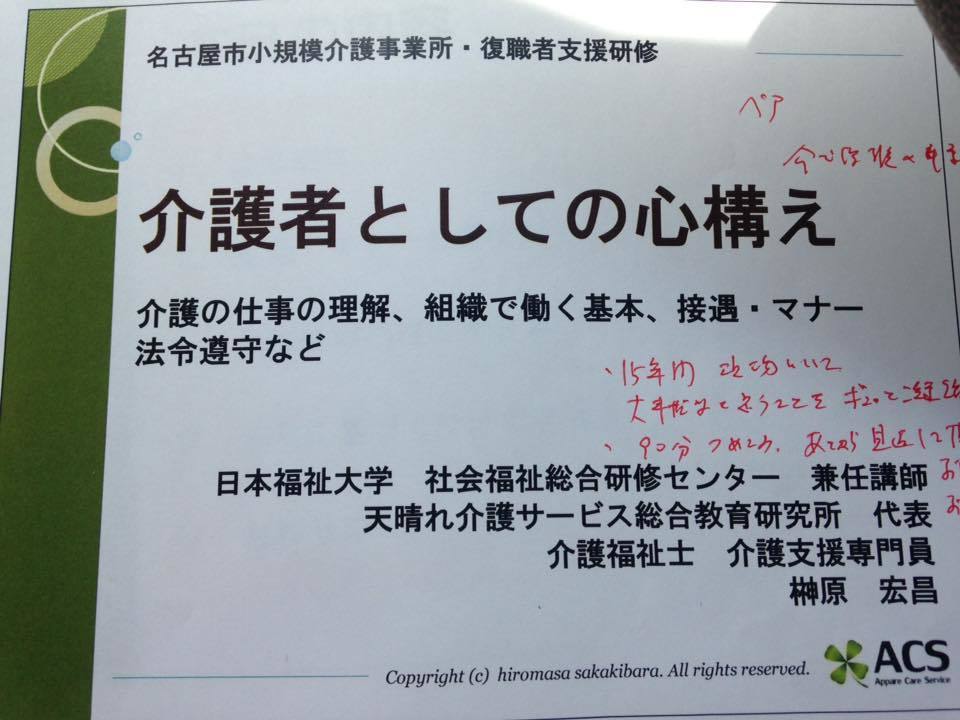 名古屋市小規模介護事業所・復職者支援研修
ペア
介護者としての心構え
介護の仕事の理解、組織で働く基本、接遇・マナー
法令遵守など
・15年間
大事だなと思うことを
・90分つめこみ、あとから見返して
日本福祉大学 社会福祉総合研修センター 兼任講師
天晴れ介護サービス総合教育研究所 代表
介護福祉士 介護支援専門員
榊原 宏昌
Copyright (c) hiromasa sakakibara. All rights reserved.
ACS
Appare Care Service